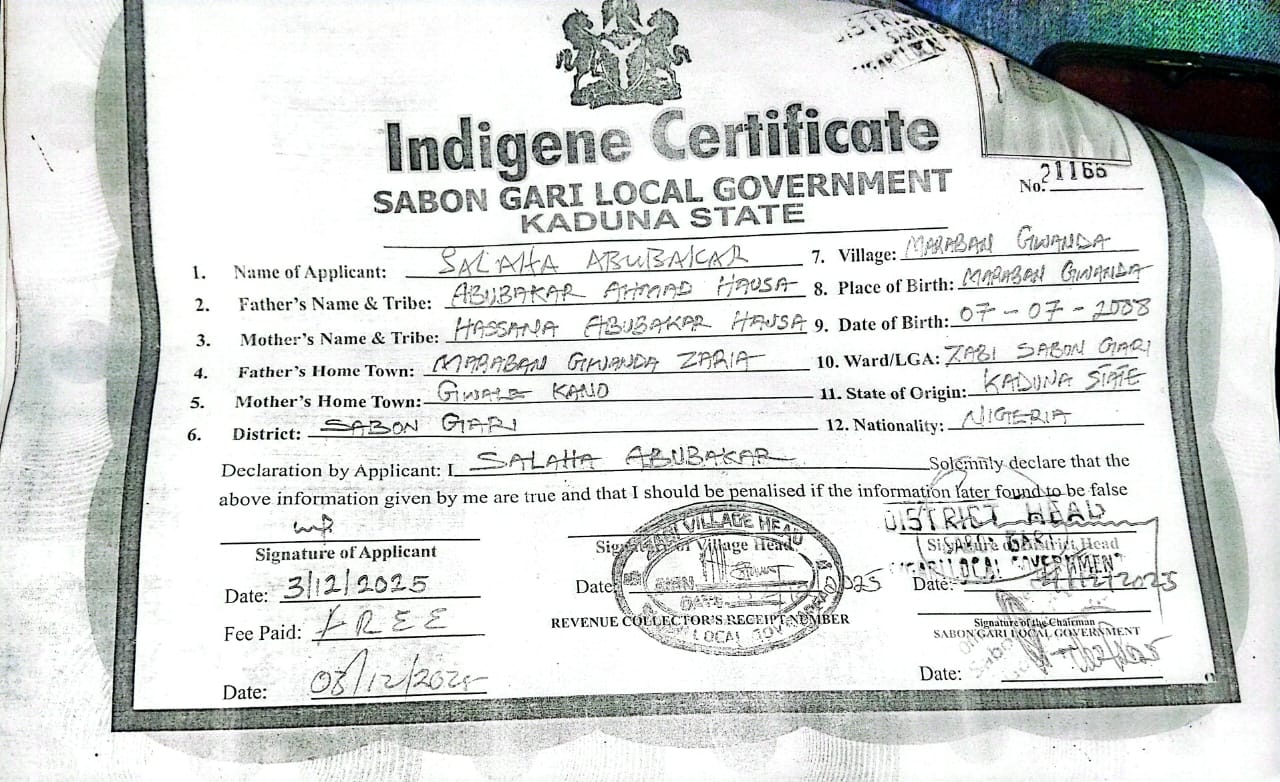 Indigene Certificate
SABON GARI LOCAL GOVERNMENT
KADUNA STATE
No. 21166
1. Name of Applicant: SALAHA ABUBAKAR
2. Father's Name & Tribe: ABUBAKAR AHMAD HAUSA
3. Mother's Name & Tribe: HASSANA ABUBAKAR HAUSA
4. Father's Home Town: MARABAN GWANDA ZARIA
5. Mother's Home Town: GWALE KANO
6. District: SABON GARI
7. Village: MARABAN GWANDA
8. Place of Birth: MARABAN GWANDA
9. Date of Birth: 07-07-
10. Ward/LGA: ZABI SABON GARI
11. State of Origin: KADUNA STATE
12. Nationality: NIGERIA
Declaration by Applicant: I SALAHA ABUBAKAR Solemnly declare that the
above information given by me are true and that I should be penalised if the information later found to be false
Signature of Applicant
Date: 3/12/2025
Fee Paid: FREE
Date: 03/12/2025
VILLAGE HEAD
Signature of Village Head
SIGN
DATE
Date: 2025
REVENUE COLLECTOR'S RECEIPT NUMBER
LOCAL GOV
DISTRICT HEAD
Signature of District Head
SABON GARI
LOCAL GOVERNMENT
Date: 12/2025
Signature of the Chairman
SABON GARI LOCAL GOVERNMENT
Date: